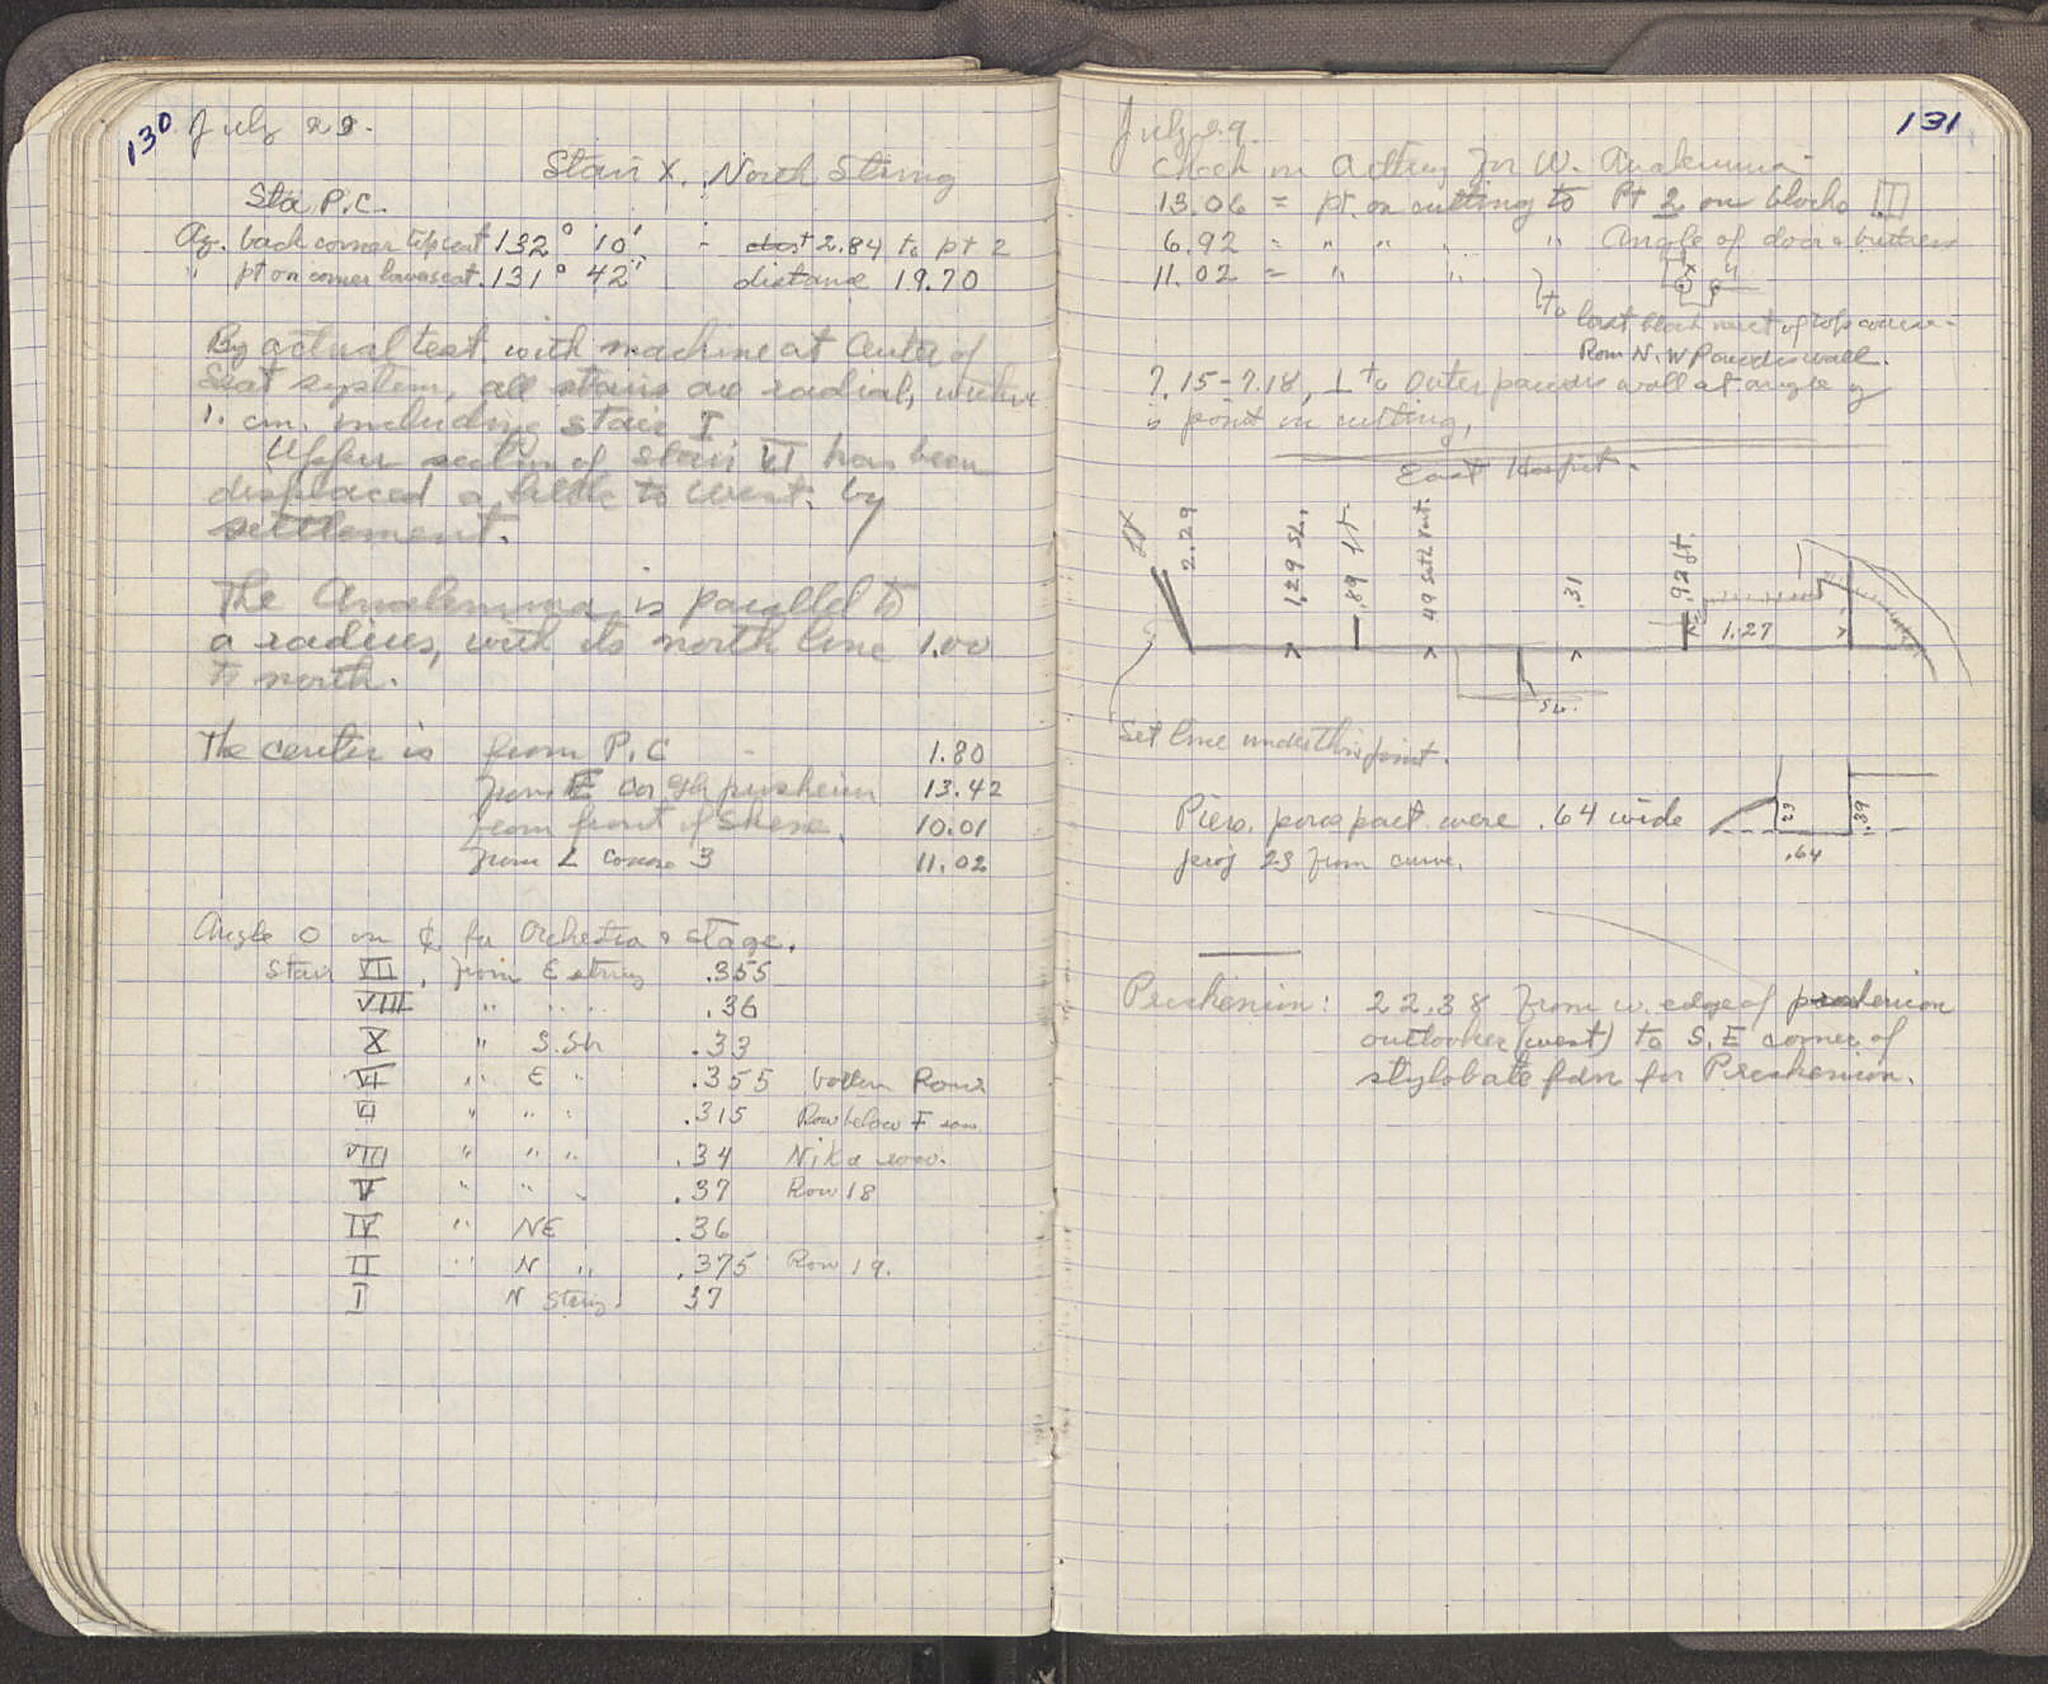 130 July 29.
Stair X. North String
Sta P.C.
Az. back corner top seat 132° 10' - dist 2.84 to pt 2
" pt on corner lower seat. 131° 42' distance 19.70
By actual test with machine at Center of
Seat system, all stairs are radial, within
1. cm. including stair I
Upper section of stair VI has been
displaced a little to west. by
settlement.
The Analemma is parallel to
a radius, with its north line 1.00
to north.
The center is from P.C - 1.80
from E cor proskenion 13.42
from front of Skene. 10.01
from L corner 3 11.02
Angle O on ℄ for Orchestra & stage.
Stair VII, from E string .355
VIII " " " .36
X " S. Str .33
VI " E " .355 bottom Row
VI " " " .315 Row below F row
VIII " " " .34 Nika row.
V " " " .37 Row 18
IV " NE .36
II " N " .375 Row 19.
I N String .37
131
July 29.
Check on cutting for W. Analemma
13.06 = pt. on cutting to Pt 2 on blocks III
6.92 = " " " " Angle of door & buttress
11.02 = " "
x y
to last block west of top course.
from N.W Parodos wall.
7.15-7.18, ⊥ to outer parodos wall at angle y
is point on cutting,
East Hospit.
2.29
1.29 SL.
.89 ft.
49 Set Vert.
.31
.92 ft.
1.27
SL.
Set line under this point.
Piers. poros part were .64 wide
proj 23 from curve.
23
.64
1.39
Proskenion: 22.38 from w. edge of proskenion
outlooker (west) to S.E corner of
stylobate fdn for Proskenion.